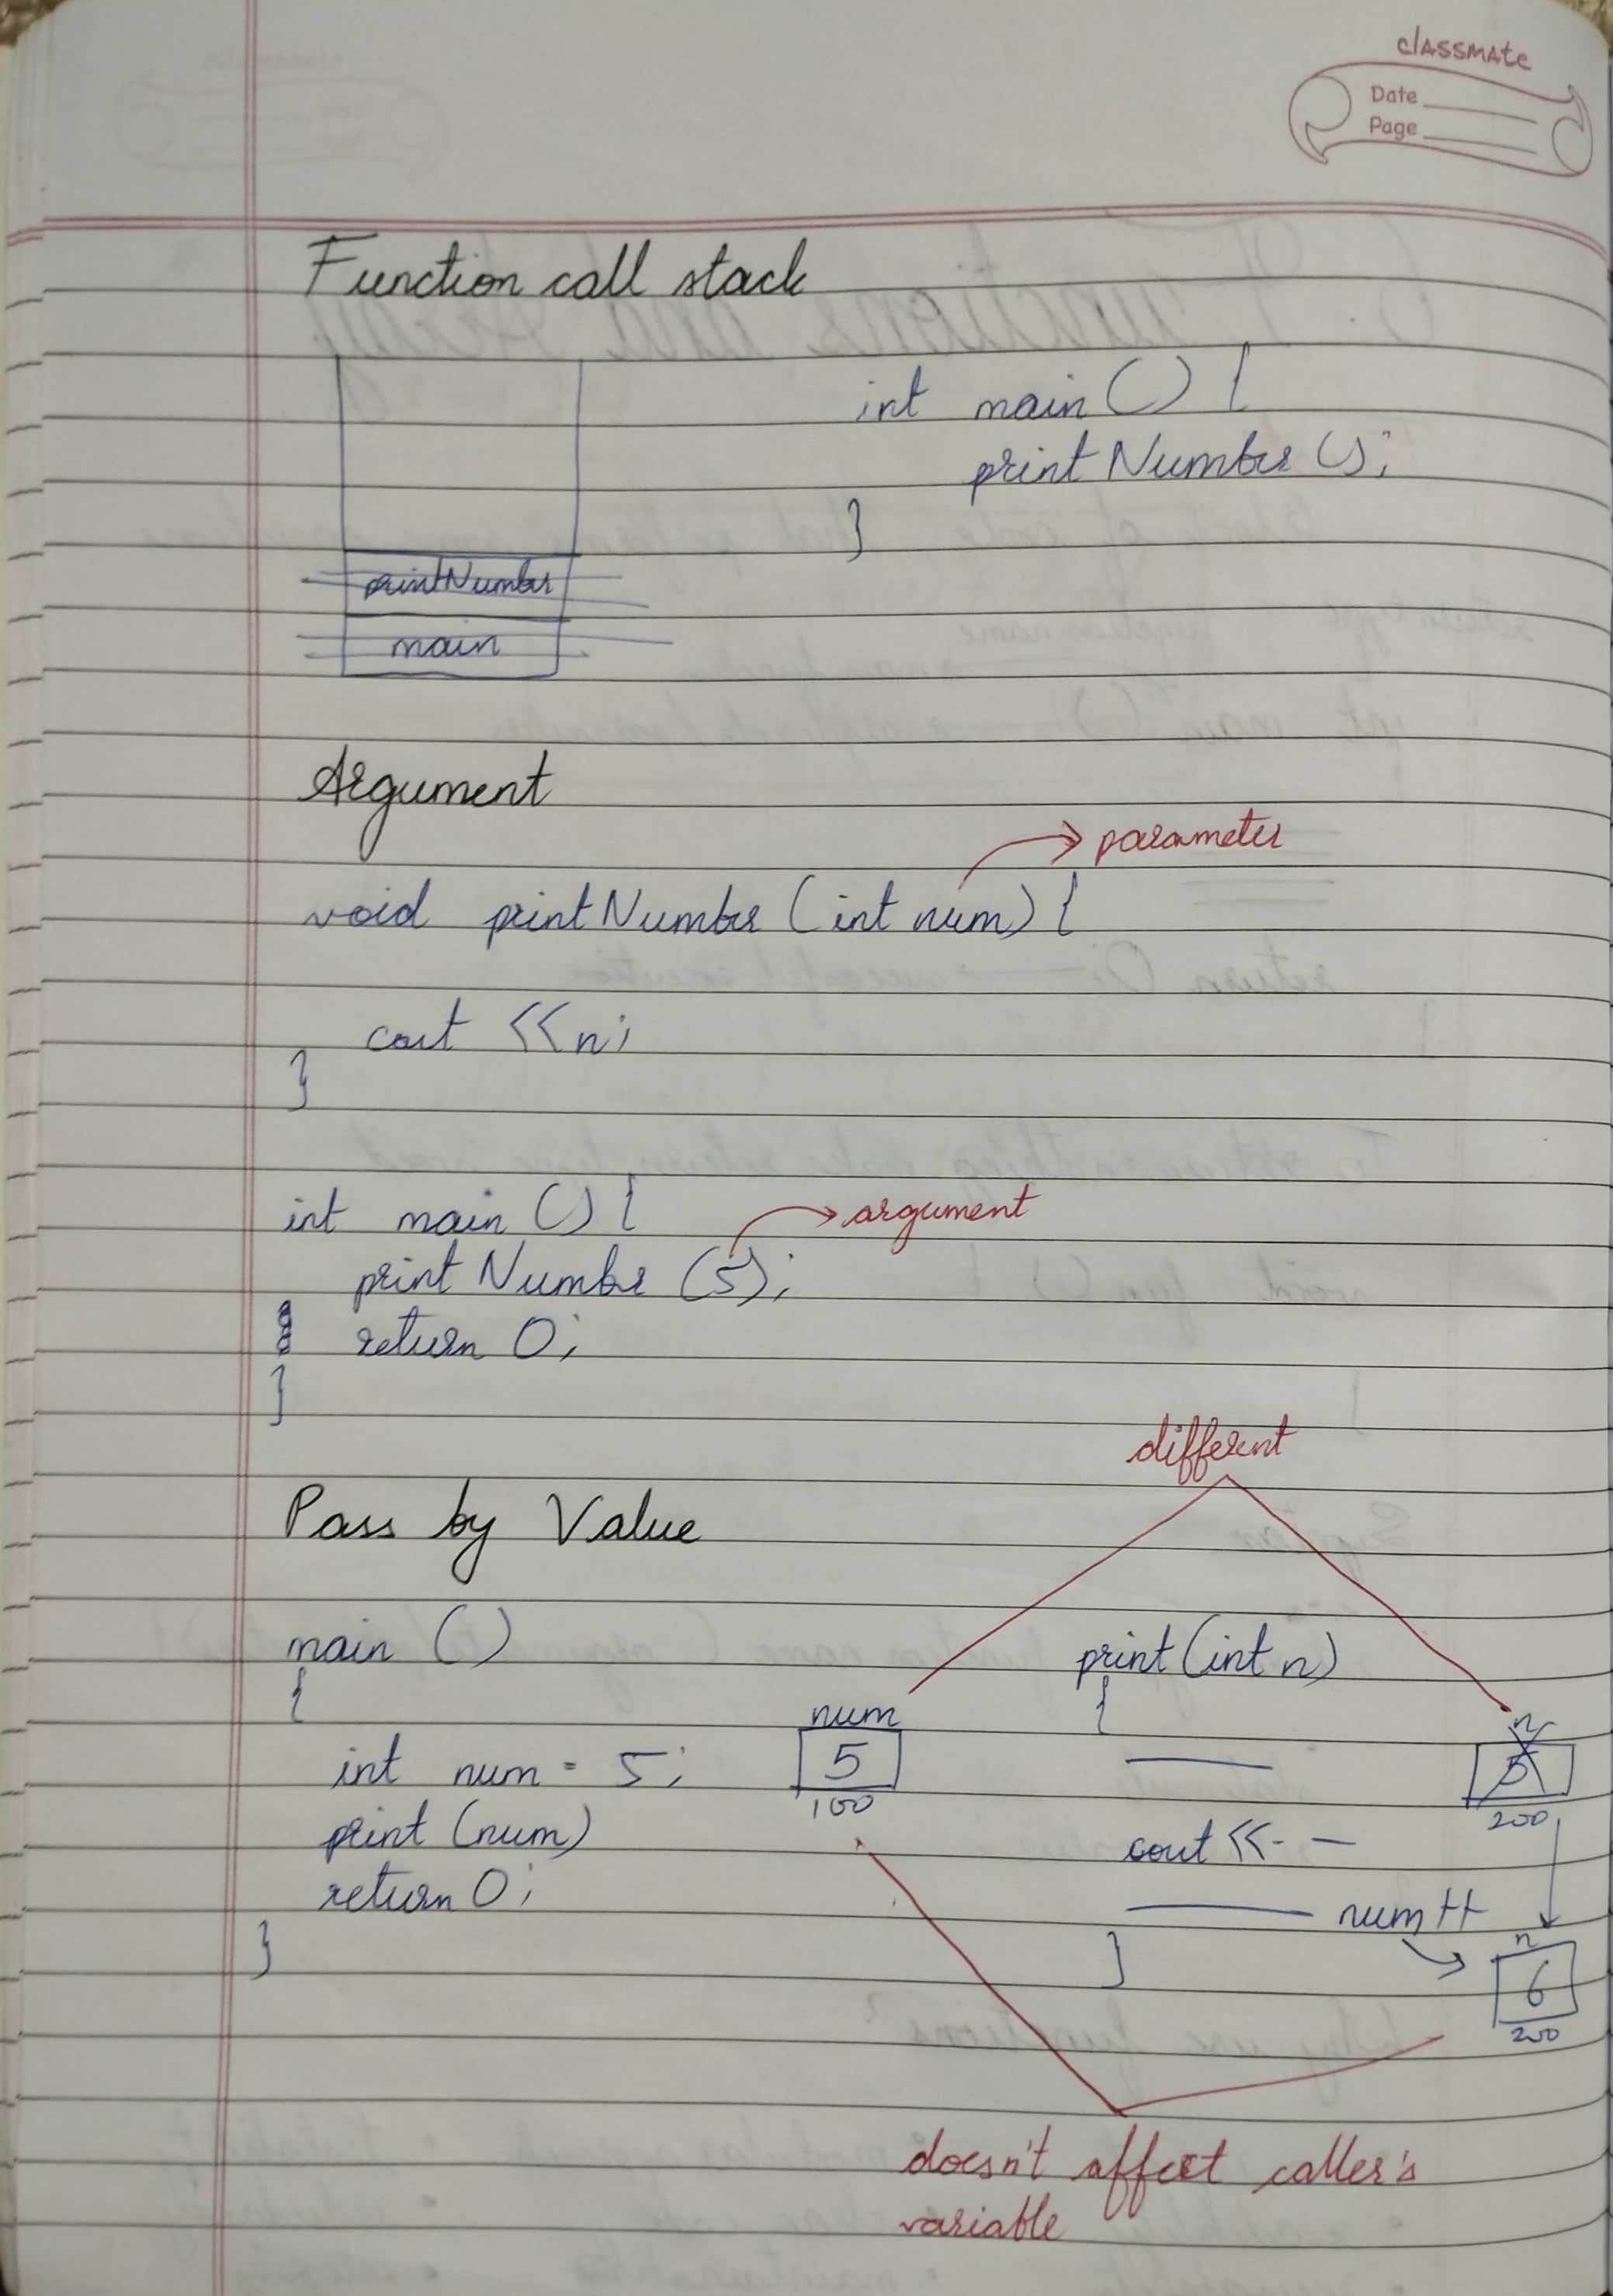 classmate
Date
Page
Function call stack
int main () {
printNumber ();
}
printNumber
main
Argument
parameter
void printNumber (int num) {
cout <<n;
}
int main () {
argument
printNumber (5);
return 0;
}
different
Pass by Value
main ()
{
int num = 5;
print (num)
return 0;
}
num
5
100
print (int n)
{
cout <<- -
num++
}
n
5
200
n
6
200
doesn't affect caller's
variable